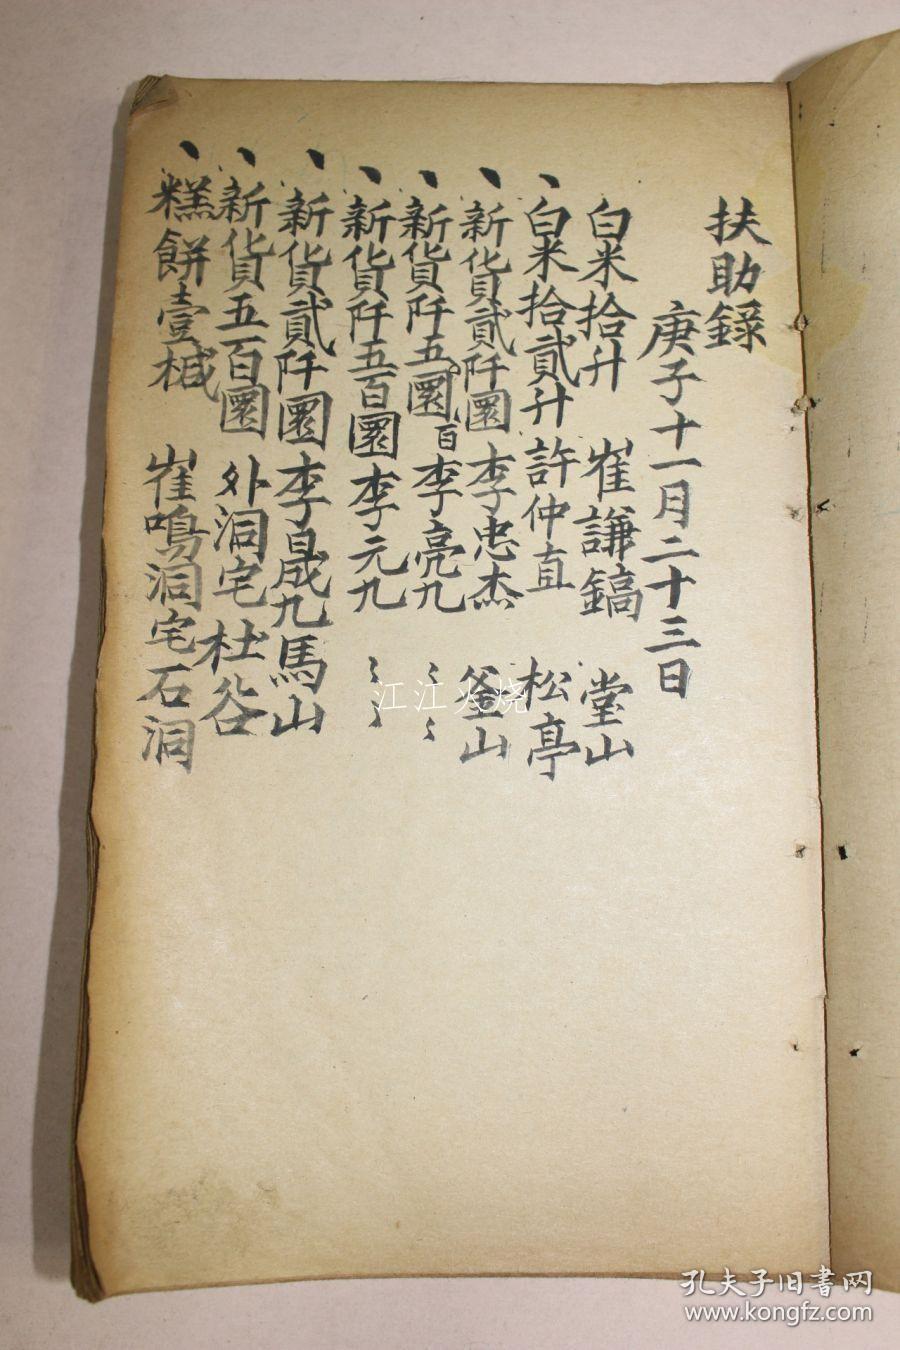 扶助錄
庚子十一月二十三日
白米拾升 崔謙鎬 堂山
白米拾貳升 許仲直 松亭
新貨貳仟圜 李忠杰 釜山
新貨仟五百圜 李亮九 〻〻
新貨仟五百圜 李元九 〻〻
新貨貳仟圜 李晟九 馬山
新貨五百圜 外洞宅 杜谷
糕餅壹械 崔鳴洞宅 石洞
江江火烧
孔夫子旧書网
www.kongfz.com